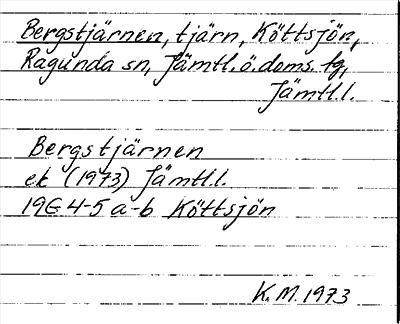 Bergstjärnen, tjärn, Köttsjön,
Ragunda sn, Jämtl. ö. doms. fg,
Jämtl.l.
Bergstjärnen
ek (1973) Jämtl.l.
19E 4-5 a-b Köttsjön
K.M. 1973